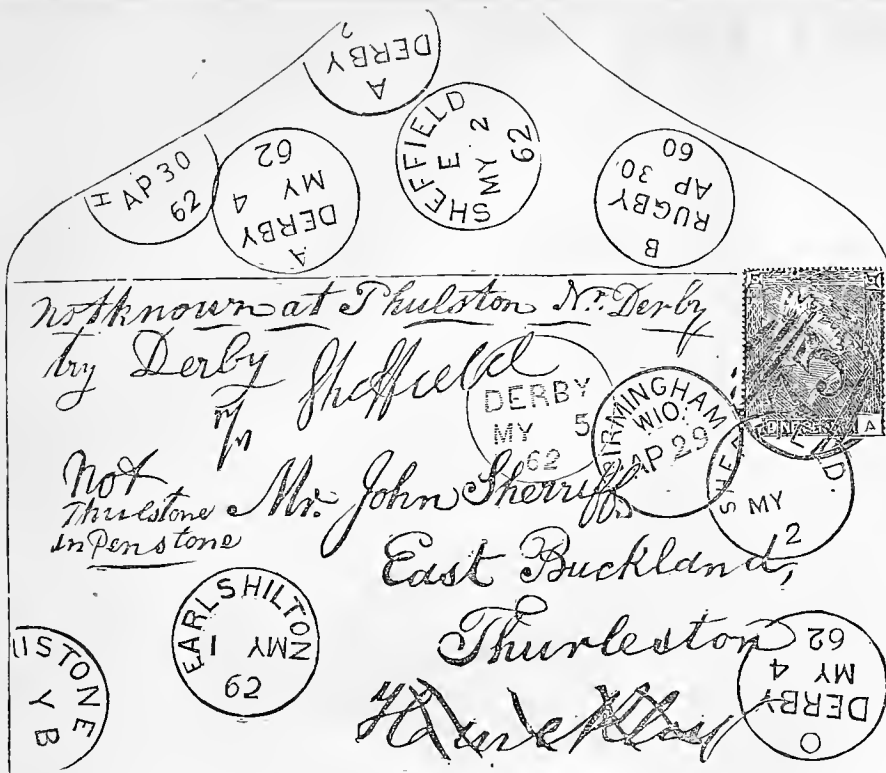 A
DERBY
2
H
AP 30
62
A
DERBY
MY 4
62
SHEFFIELD
E
MY 2
62
B
RUGBY
AP 30
60
not known at Thulston Nr. Derby
try Derby Sheffield
DERBY
MY 5
62
BIRMINGHAM
W10.
AP 29
SHEFFIELD.
MY
2
A
Not
Thulstone
in Penstone
Mr. John Sherriff
East Buckland,
Thurleston
EARLSHILTON
1 MY
62
USTONE
Y B
O
DERBY
MY 4
62